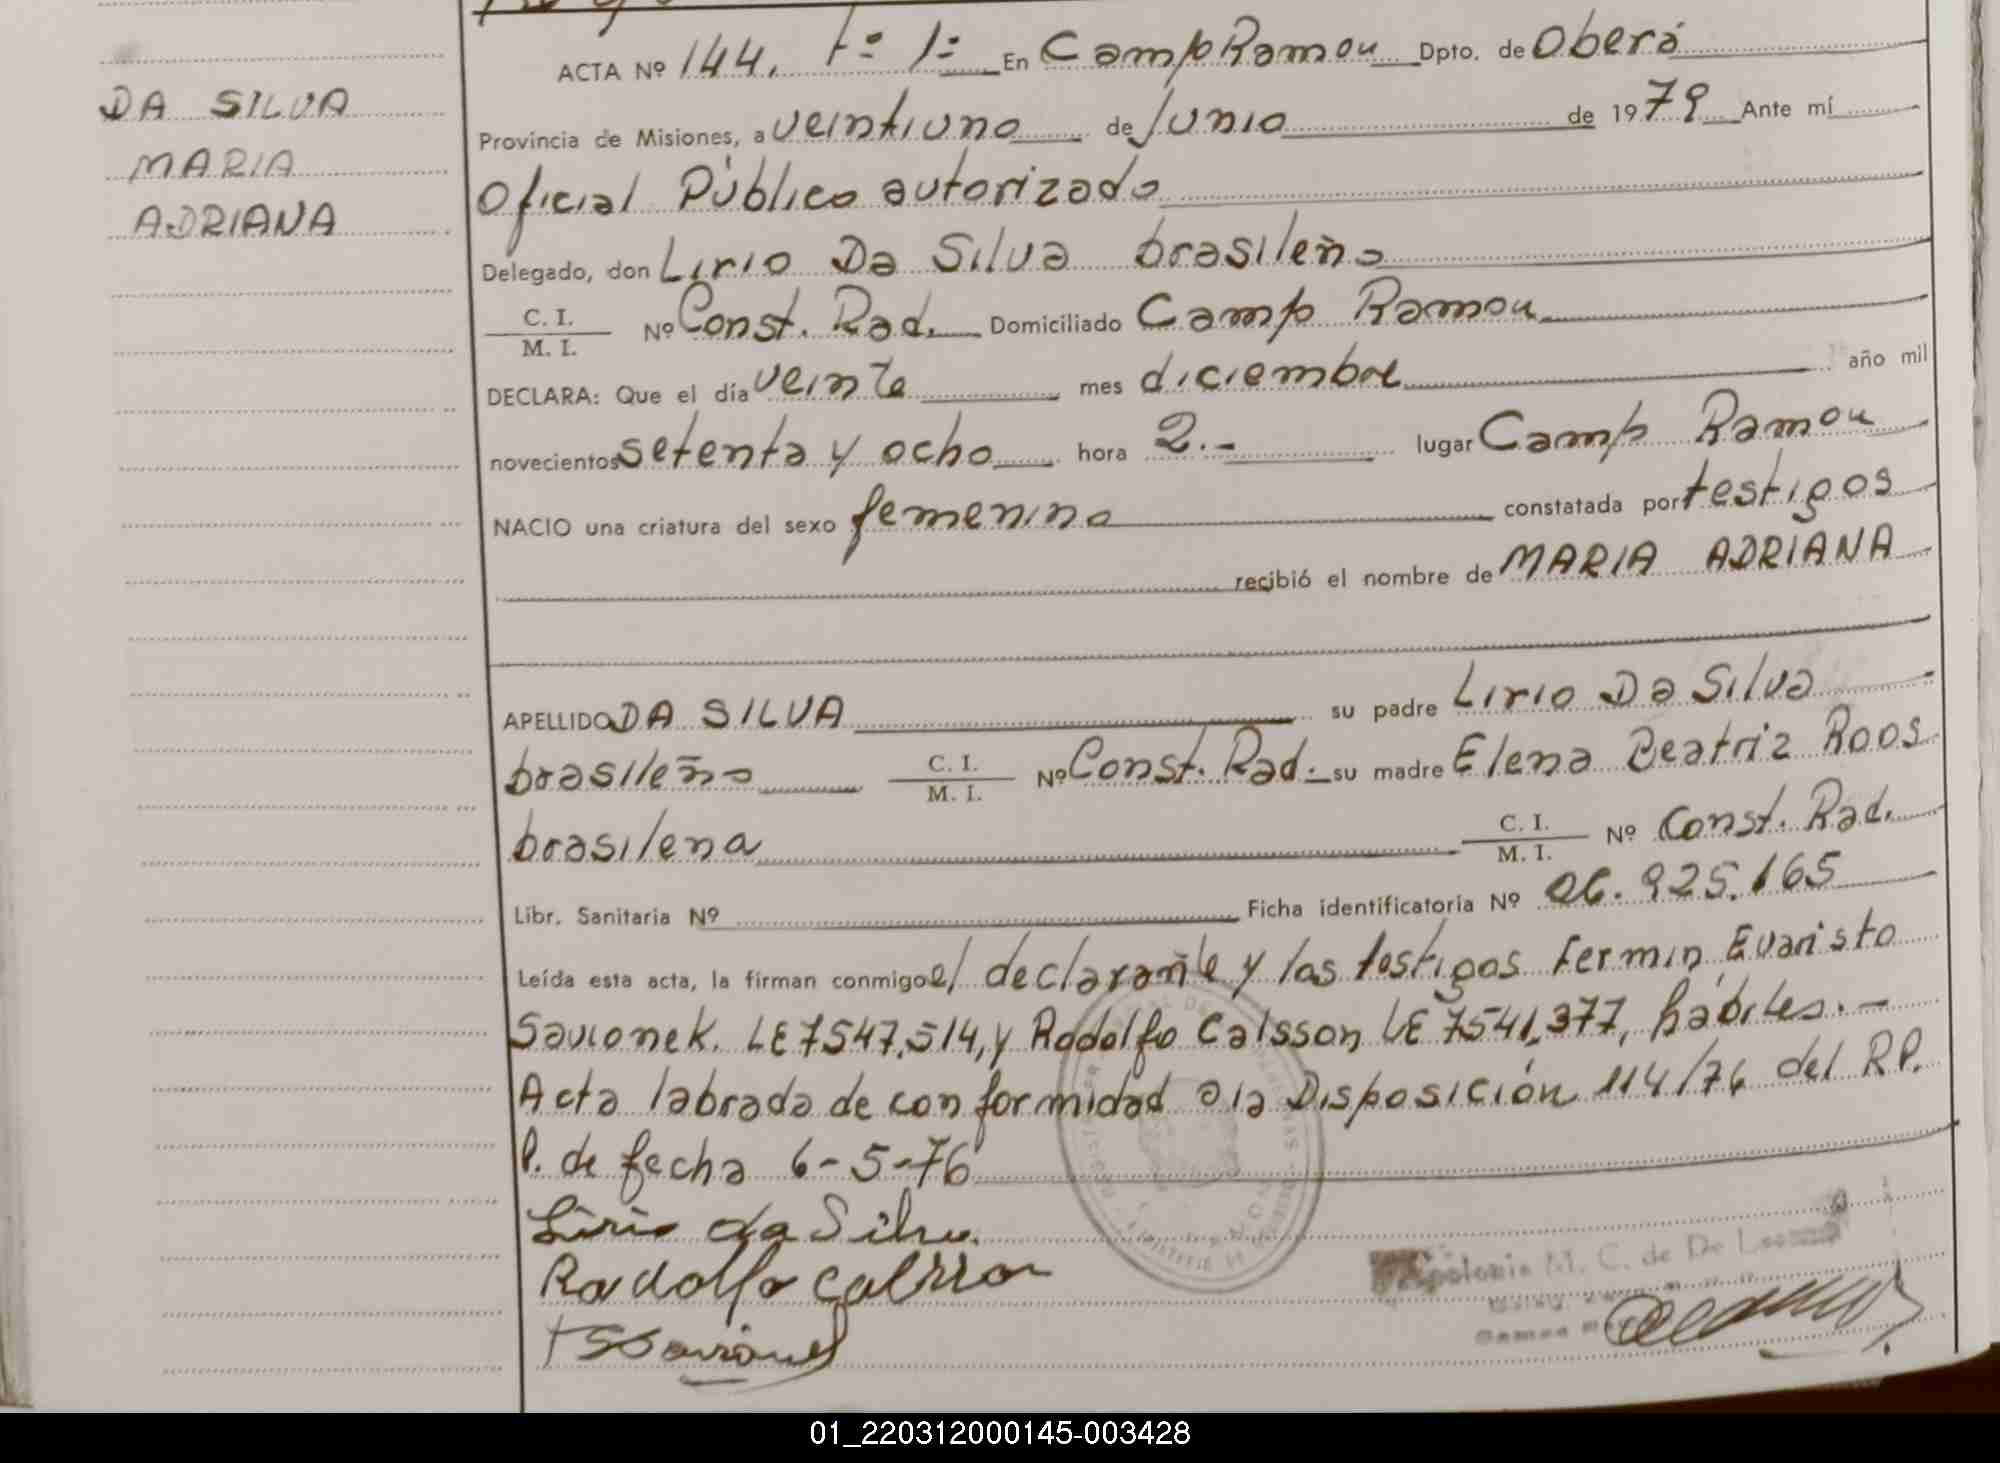 DA SILVA
MARIA
ADRIANA
ACTA Nº 144. Tº 1º En Camp Ramon Dpto. de Oberá
Provincia de Misiones, a veintiuno de Junio de 1979 Ante mí
Oficial Público autorizado
Delegado, don Lirio Da Silva brasileño
C. I. / M. I. Nº Const. Rad. Domiciliado Camp Ramon
DECLARA: Que el día veinte mes diciembre año mil
novecientos setenta y ocho hora 2.- lugar Camp Ramon
NACIO una criatura del sexo femenino constatada por testigos
recibió el nombre de MARIA ADRIANA
APELLIDO DA SILVA su padre Lirio Da Silva
brasileño C. I. / M. I. Nº Const. Rad. su madre Elena Beatriz Roos
brasilena C. I. / M. I. Nº Const. Rad.
Libr. Sanitaria Nº Ficha identificatoria Nº 06.925.165
Leída esta acta, la firman conmigo el declarante y los testigos Fermin Evaristo
Savionek. LE 7547.514, y Rodolfo Calsson LE 7541.377, hábiles.-
Acta labrada de conformidad a la Disposición 114/76 del R.P.
P. de fecha 6-5-76
Lirio da Silva
Rodolfo Calsson
M. C. de De
01_220312000145-003428